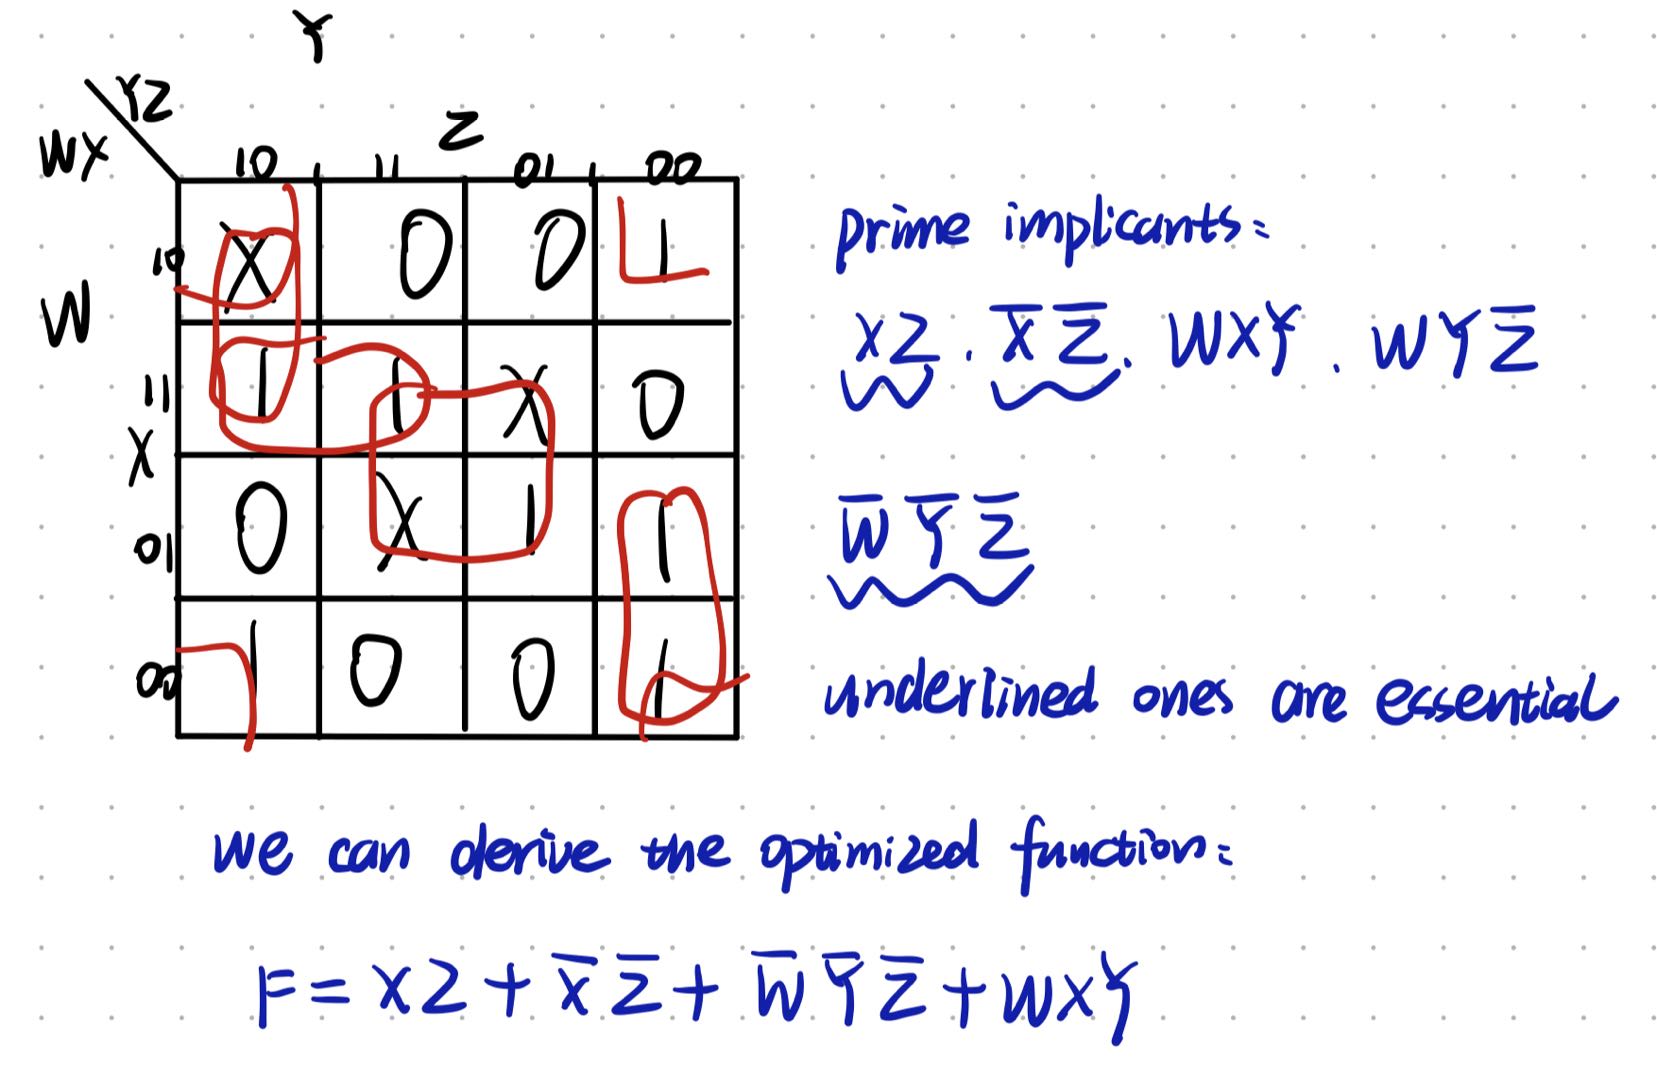 Y
YZ
WX
Z
10 11 01 00
10 X 0 0 1
W
11 1 1 X 0
X
01 0 X 1 1
00 1 0 0 1
prime implicants:
XZ . X̅ Z̅ . WXY . WYZ̅
W̅ Y̅ Z̅
underlined ones are essential
we can derive the optimized function:
F = XZ + X̅ Z̅ + W̅ Y̅ Z̅ + WXY